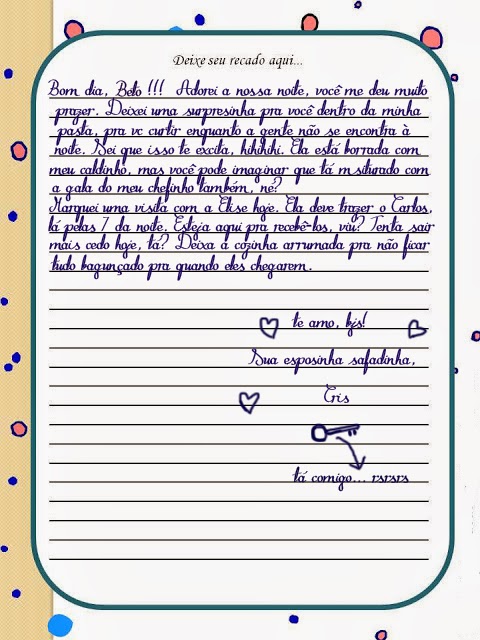 Deixe seu recado aqui...
Bom dia, Beto!!! Adorei a nossa noite, você me deu muito
prazer. Deixei uma surpresinha pra você dentro da minha
pasta, pra vc curtir enquanto a gente não se encontra à
noite. Sei que isso te excita, hihihihi. Ela está borrada com
meu caldinho, mas você pode imaginar que tá misturado com
a gala do meu chefinho também, né?
Marquei uma visita com a Elise hoje. Ela deve trazer o Carlos,
lá pelas 7 da noite. Esteja aqui pra recebê-los, viu? Tenta sair
mais cedo hoje, tá? Deixa a cozinha arrumada pra não ficar
tudo bagunçado pra quando eles chegarem.
te amo, bjs!
Sua esposinha safadinha,
Cris
tá comigo... rsrsrs